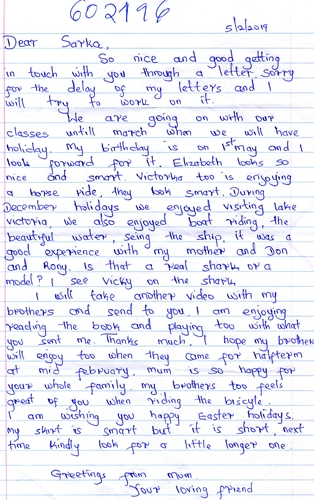 602196
5/2/2019
Dear Sarka,
So nice and good getting
in touch with you through a letter. Sorry
for the delay of my letters and I
will try to work on it.
We are going on with our
classes untill march when we will have
holiday. My birthday is on 1st may and I
look forward for it. Elizabeth looks so
nice and smart. Victorka too is enjoying
a horse ride, they look smart. During
December holidays we enjoyed visiting lake
victoria, we also enjoyed boat riding, the
beautiful water, seing the ship, it was a
good experience with my mother and Don
and Rony. Is that a real shark or a
model? I see Vicky on the shark.
I will take another video with my
brothers and send to you. I am enjoying
reading the book and playing too with what
you sent me. Thanks much, I hope my brothers
will enjoy too when they came for halfterm
at mid february. mum is so happy for
your whole family. my brothers too feels
great of you when riding the biscyle.
I am wishing you happy Easter holidays.
my skirt is smart but it is short, next
time kindly look for a little longer one.
Greetings from mum
Your loving friend